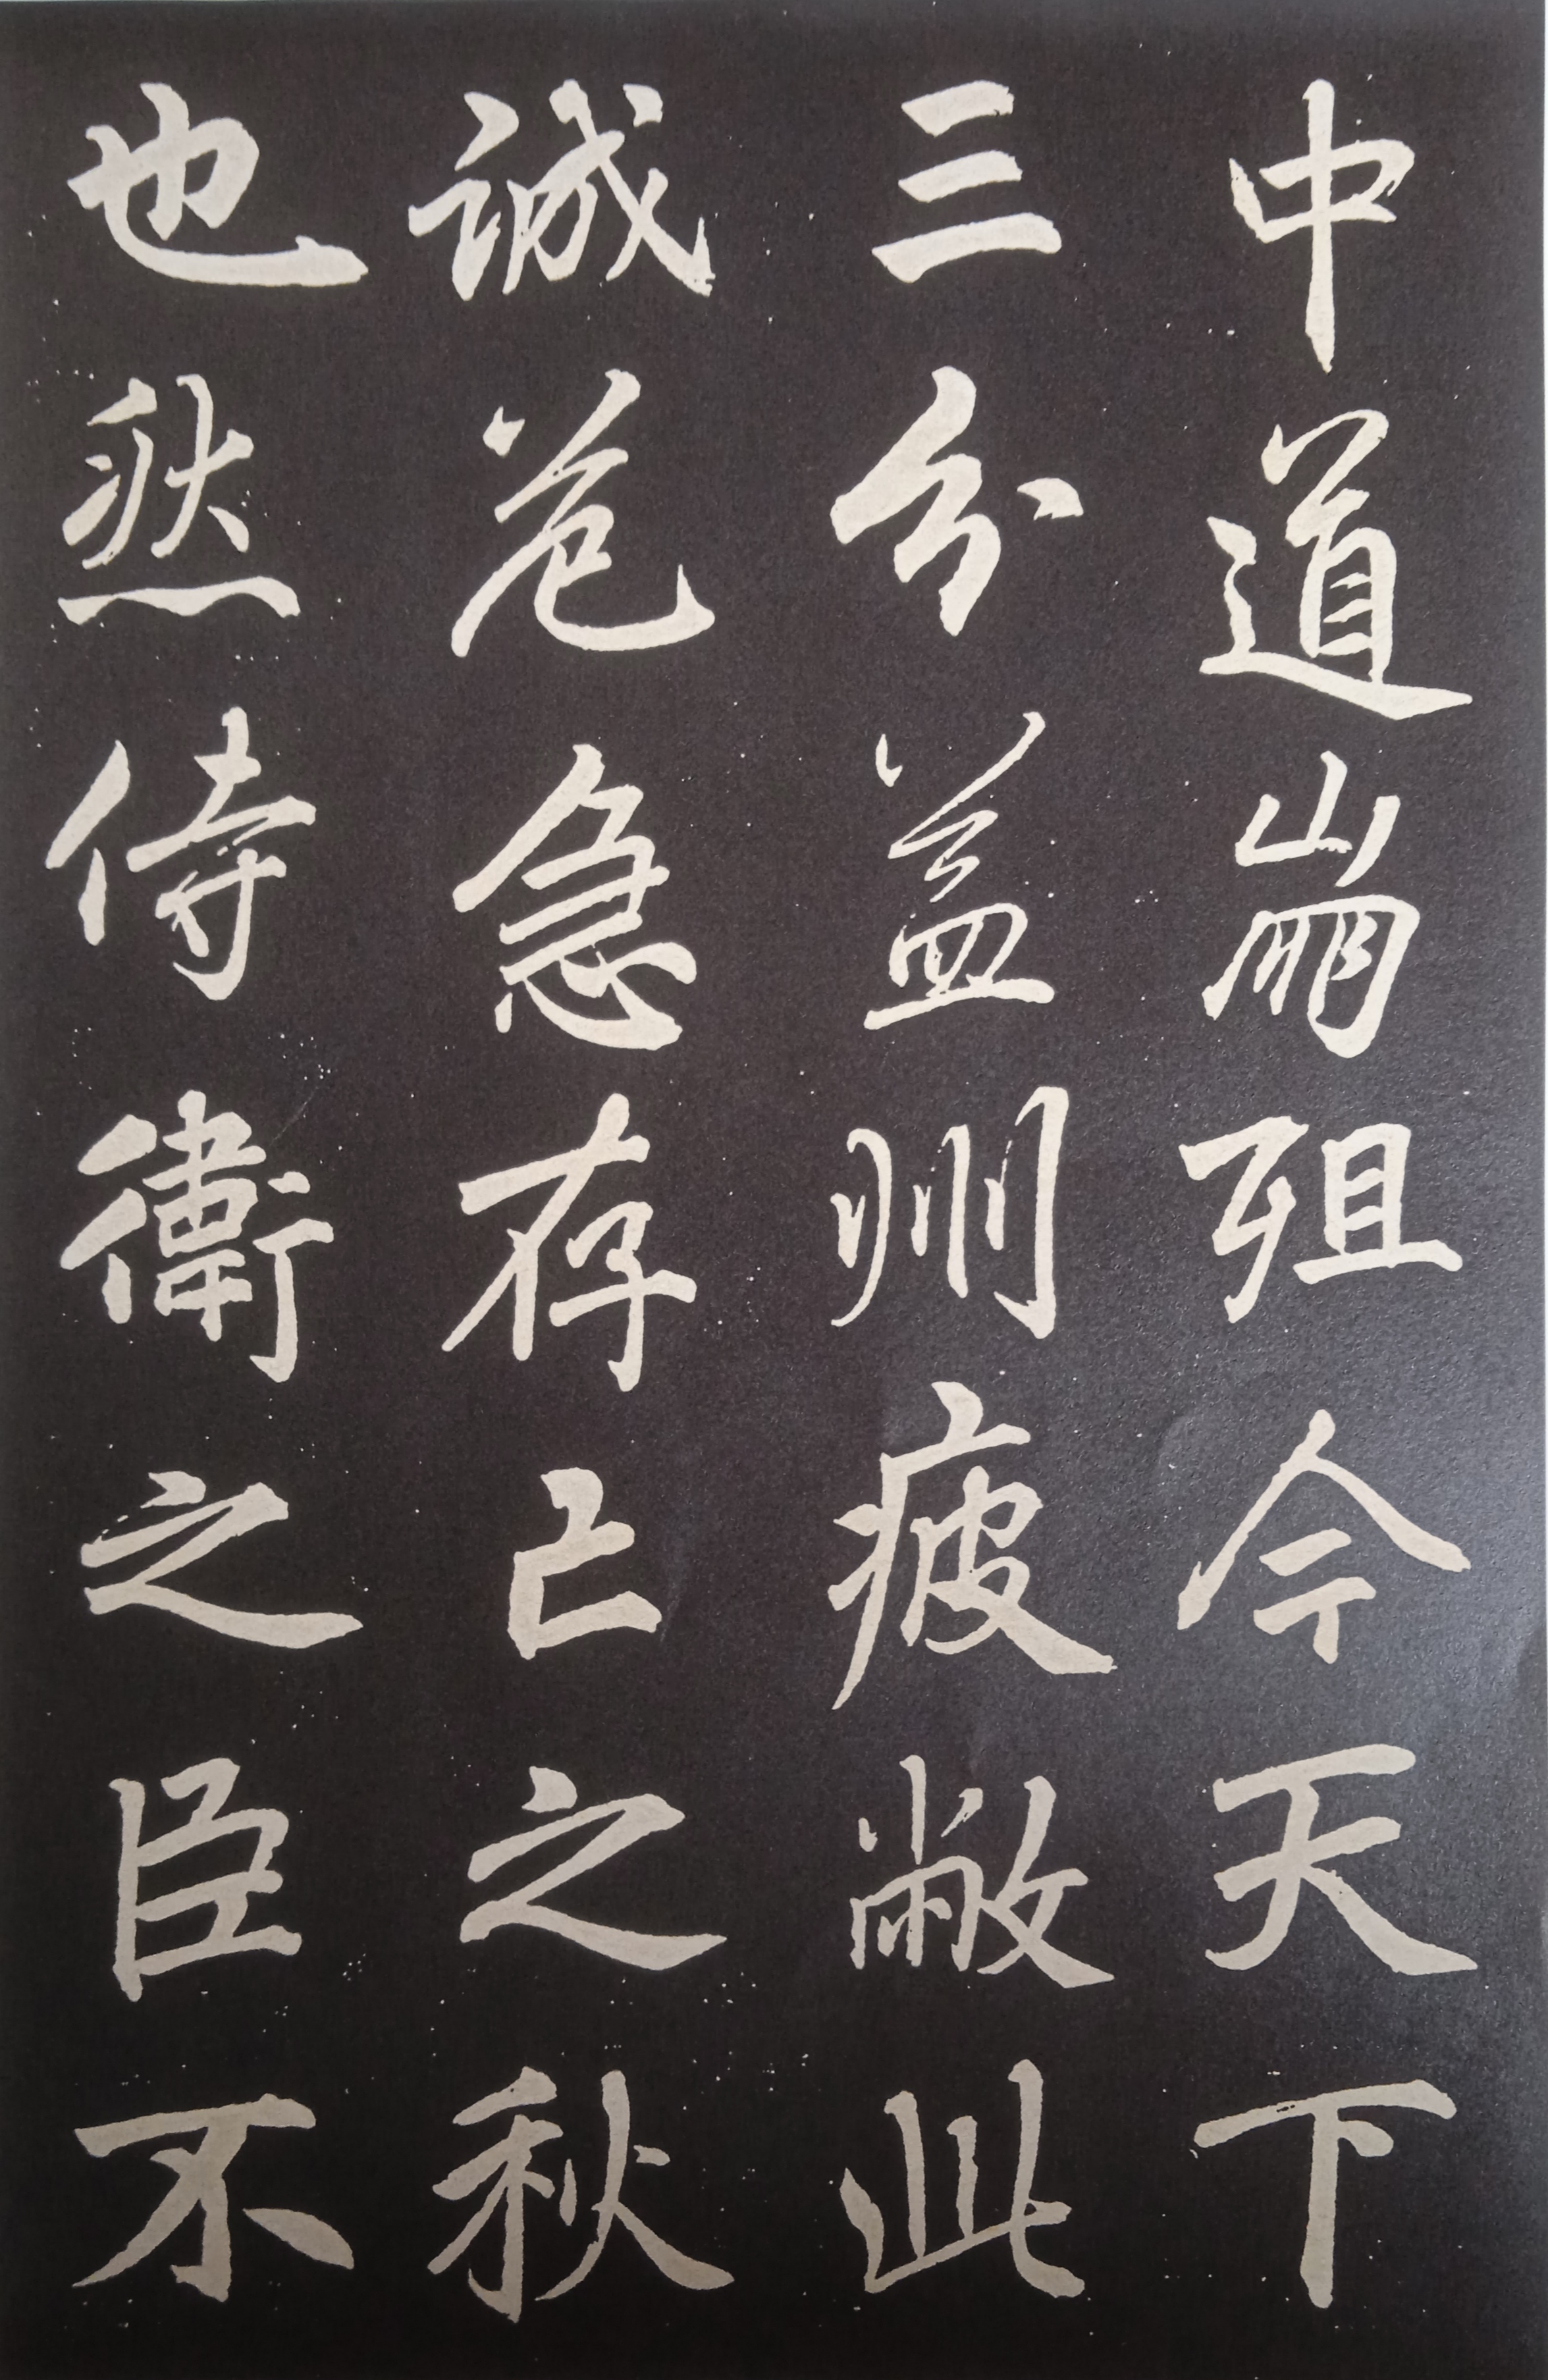 中道崩殂今天下
三分益州疲敝此
誠危急存亡之秋
也然侍衛之臣不